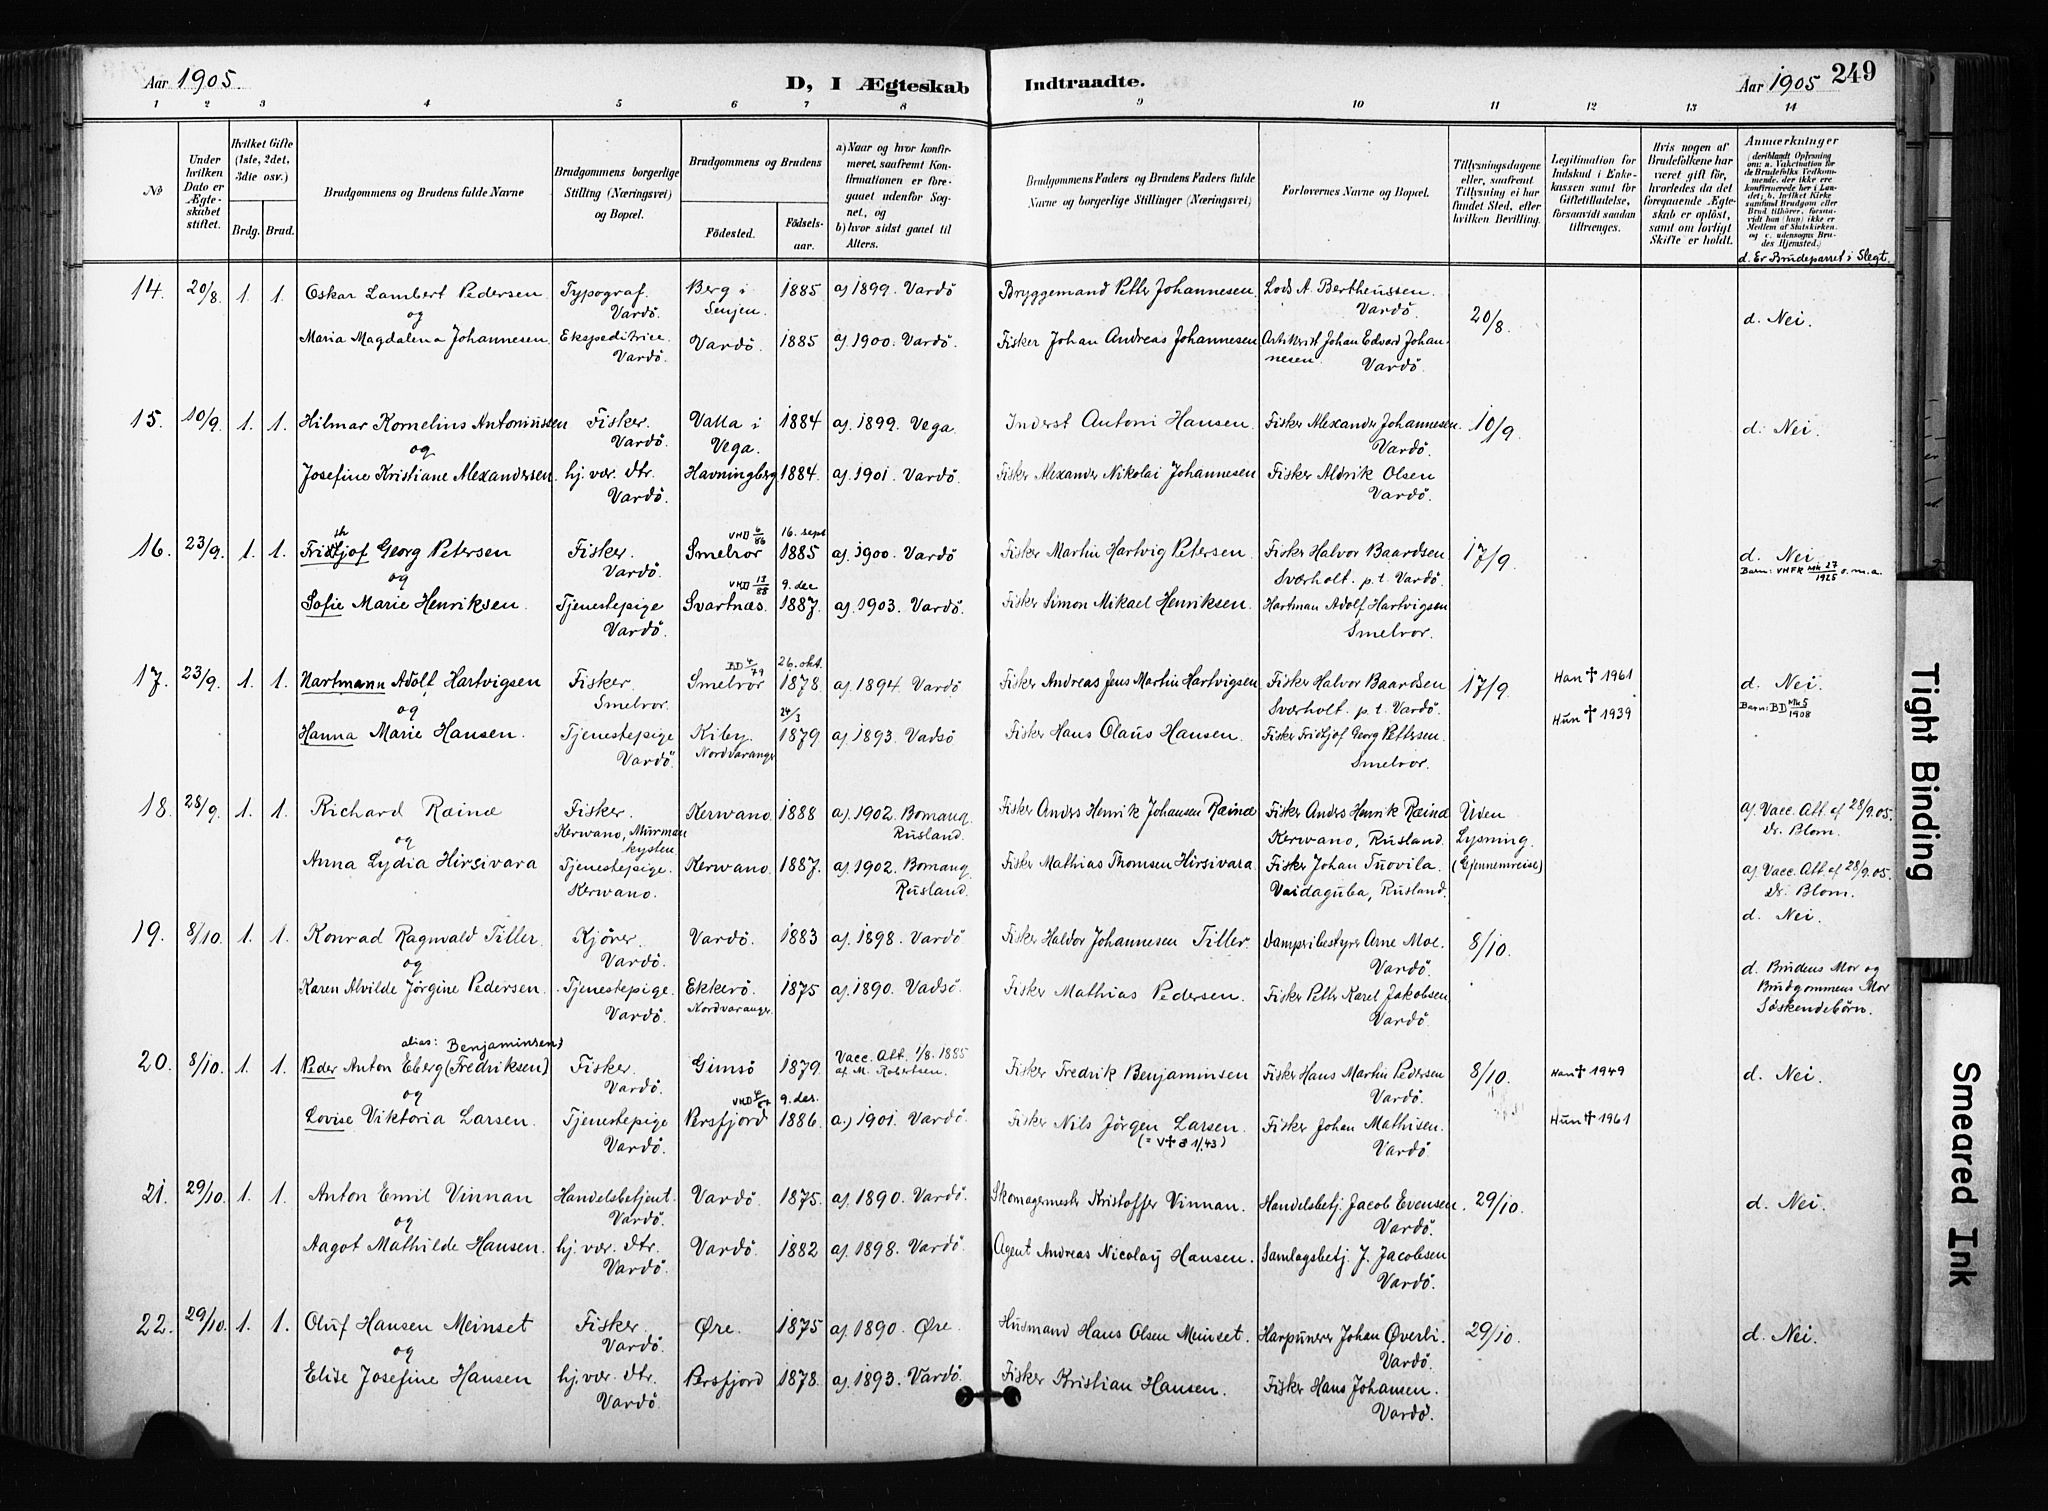 Aar 1905. D, I Ægteskab Indtraadte. Aar 1905 249
1 2 3 4 5 6 7 8 9 10 11 12 13 14
No
Under hvilken Dato er Ægteskabet stiftet.
Hvilket Gifte (1ste, 2det, 3die osv.)
Brdg. Brud.
Brudgommens og Brudens fulde Navne
Brudgommens borgerlige Stilling (Næringsvei) og Bopæl.
Brudgommens og Brudens
Fødested. Fødselsaar.
a) Naar og hvor konfirmeret, saafremt Konfirmationen er foregaaet udenfor Sognet, og
b) hvor sidst gaaet til Alters.
Brudgommens Faders og Brudens Faders fulde Navne og borgerlige Stillinger (Næringsvei)
Forlovernes Navne og Bopæl.
Tillysningsdagene eller, saafremt Tillysning ei har fundet Sted, efter hvilken Bevilling.
Legitimation for Indskud i Enkekassen samt for Giftetilladelse, forsaavidt saadan tiltrænges.
Hvis nogen af Brudefolkene har været gift før, hvorledes da det foregaaende Ægteskab er opløst, samt om lovligt Skifte er holdt.
Anmærkninger
(deriblandt Oplysning om: a. Vakcination for de Brudefolks Vedkommende, der ikke ere konfirmerede her i Landet; b. hvilket Kirkesamfund Brudgom eller Brud tilhører, forsaavidt han (hun) ikke er Medlem af Statskirken, og c. udensogns Brudes Hjemsted.)
d. Er Brudeparret i Slegt.
14. 20/8. 1. 1. Oskar Lambert Pedersen Typograf. Vardö. Berg i Senjen. 1885 a) 1899. Vardö Bryggemand Petter Johannesen Lods A. Bertheussen. Vardö. 20/8. d. Nei.
og
Maria Magdalena Johannesen Ekspeditrice Vardö. Vardö. 1885 a) 1900. Vardö Fisker Johan Andreas Johannesen Johan Edvard Johannesen. Vardö.
15. 10/9. 1. 1. Hilmar Kornelius Antoniussen Fisker. Vardö. Valla i Vega. 1884 a). 1899. Vega. Inderst Antoni Hansen. Fisker Alexander Johannesen. Vardö. 10/9. d. Nei.
og
Josefine Kristiane Alexandersen. hj. vær. dtr. Vardö. Havningberg 1884. a). 1901. Vardö. Fisker Alexander Nikolai Johannesen Fisker Aldrik Olsen Vardö.
16. 23/9. 1. 1. Fridtjof Georg Petersen th Fisker. Vardö. Smelror VHD 6/86 16. sept 1885 a). 1900. Vardö Fisker Martin Hartvig Petersen Fisker Halvor Baardsen Sværholt. p. t. Vardö. 17/9. d. Nei
Barn: VHFK Mk 27/1925 o.m.a.
og
Sofie Marie Henriksen. Tjenestepige Vardö. Svartnæs. VHD 13/88 9. dec 1887. a) 1903. Vardö. Fisker Simon Mikael Henriksen. Hartman Adolf Hartvigsen Smelror.
17. 23/9. 1. 1. Hartmann Adolf Hartvigsen Fisker. Smelror. Smelror BD 4/79 26. okt. 1878. a). 1894. Vardö Fisker Andreas Jens Martin Hartvigsen Fisker Halvor Baardsen Sværholt. p. t. Vardö. 17/9. Han ✝ 1961 d. Nei.
Barn: BD Mk 5/1908
og
Hanna Marie Hansen. Tjenestepige Vardö. Kiby. Nordvaranger 24/3 1879 a) 1893. Vadsö Fisker Hans Olaus Hansen. Fisker Fridtjof Georg Pettersen. Smelror. Hun ✝ 1939
18. 28/9. 1. 1. Richard Ræinæ Fisker. Kerwano, Murmankysten Kerwano. 1888 a). 1902. Bomanq. Rusland. Fisker Anders Henrik Johansen Ræinæ Fisker Anders Henrik Ræinæ Kerwano, Rusland. Uden Lysning. (Gjennemreise) a). Vacc. Att. af 28/9.05. Dr. Blom.
og
Anna Lydia Hirsivara Tjenestepige. Kerwano. Kerwano. 1887. a). 1902. Bomanq. Rusland. Fisker Mathias Thomsen Hirsivara Fisker Johan Tuovila. Vaidaguba, Rusland. a). Vacc. Att. af 28/9.05. Dr. Blom.
d. Nei.
19. 8/10. 1. 1. Konrad Ragnvald Tiller. Kjörer. Vardö. Vardö. 1883 a). 1898. Vardö Fisker Haldor Johannesen Tiller. Arne Moe. Vardö. 8/10. d. Brudens Mor og Brudgommens Mor Söskendebörn.
og
Karen Alvilde Jörgine Pedersen. Tjenestepige. Vardö. Ekkerö. Nordvaranger. 1875 a). 1890. Vadsö. Fisker Mathias Pedersen. Fisker Petter Karel Jakobsen Vardö.
20. 8/10. 1. 1. alias: Benjaminsen)
Peder Anton Eberg (Fredriksen) Fisker. Vardö. Gimsö 1879. Vacc. Att. 1/8. 1885 af M. Robertsen. Fisker Fredrik Benjaminsen Fisker Hans Martin Pedersen Vardö. 8/10. Han ✝ 1949 d. Nei.
og
Lovise Viktoria Larsen. Tjenestepige Vardö. Persfjord VHD 9. des. 1886 a.) 1901. Vardö. Fisker Nils Jörgen Larsen. (= V✝ 8 1/43) Fisker Johan Mathisen. Vardö. Hun ✝ 1961
21. 29/10. 1. 1. Anton Emil Vinnan Handelsbetjent. Vardö. Vardö. 1875. a). 1890. Vardö. Skomagermester Kristoffer Vinnan. Handelsbetj. Jacob Evensen Vardö. 29/10. d. Nei.
og
Aagot Mathilde Hansen. hj. vær. dtr. Vardö. Vardö. 1882 a). 1898. Vardö. Agent Andreas Nicolaÿ Hansen. Samlagsbetj. J. Jacobsen Vardö.
22. 29/10. 1. 1. Oluf Hansen Meinset Fisker. Vardö. Øre. 1875 a). 1890. Øre. Husmand Hans Olsen Meinset. Harpunerer Johan Øverli. Vardö. 29/10. d. Nei.
og
Elise Josefine Hansen hj. vær. dtr. Vardö. Persfjord 1878. a). 1893. Vardö. Fisker Kristian Hansen. Fisker Hans Johansen. Vardö.
Tight Binding
Smeared Ink